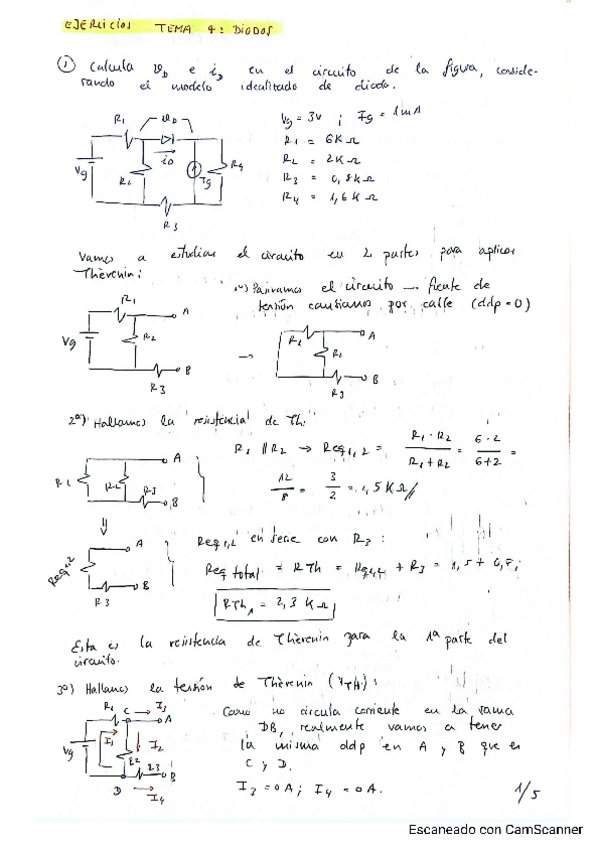 EJERCICIOS TEMA 4: DIODOS
① Calcula v_D e i_D en el circuito de la figura, conside-
rando el modelo idealizado de diodo.
R1 v_D
Vg = 3V ; Ig = 1mA
R1 = 6KΩ
R2 = 2KΩ
R3 = 0,8KΩ
R4 = 1,6KΩ
Vg R2 i_D Ig R4
R3
Vamos a estudiar el circuito en 2 partes para aplicar
Thèvenin:
1º) Pasivamos el circuito → fuente de
tensión cambiamos por cable (ddp = 0)
R1 A
Vg R2
B
R3
→
R1 A
R2
B
R3
2º) Hallamos la resistencia de Th:
R1 || R2 → Req1,2 = R1 · R2 / R1 + R2 = 6·2 / 6+2 =
12/8 = 3/2 = 1,5KΩ //
A
R1 R2 R3 B
⇓
A
Req1,2
B
R3
Req1,2 en serie con R3 :
Req total = RTh = Req1,2 + R3 = 1,5 + 0,8;
RTh1 = 2,3 KΩ
Esta es la resistencia de Thèrenin para la 1ª parte del
circuito.
3º) Hallamos la tensión de Thèrenin (VTH):
R1 C I3 A
Vg I1 I2
R2 R3 B
D I4
Como no circula corriente en la rama
DB, realmente vamos a tener
la misma ddp en A y B que en
C y D.
I3 = 0A; I4 = 0A.
1/5
Escaneado con CamScanner